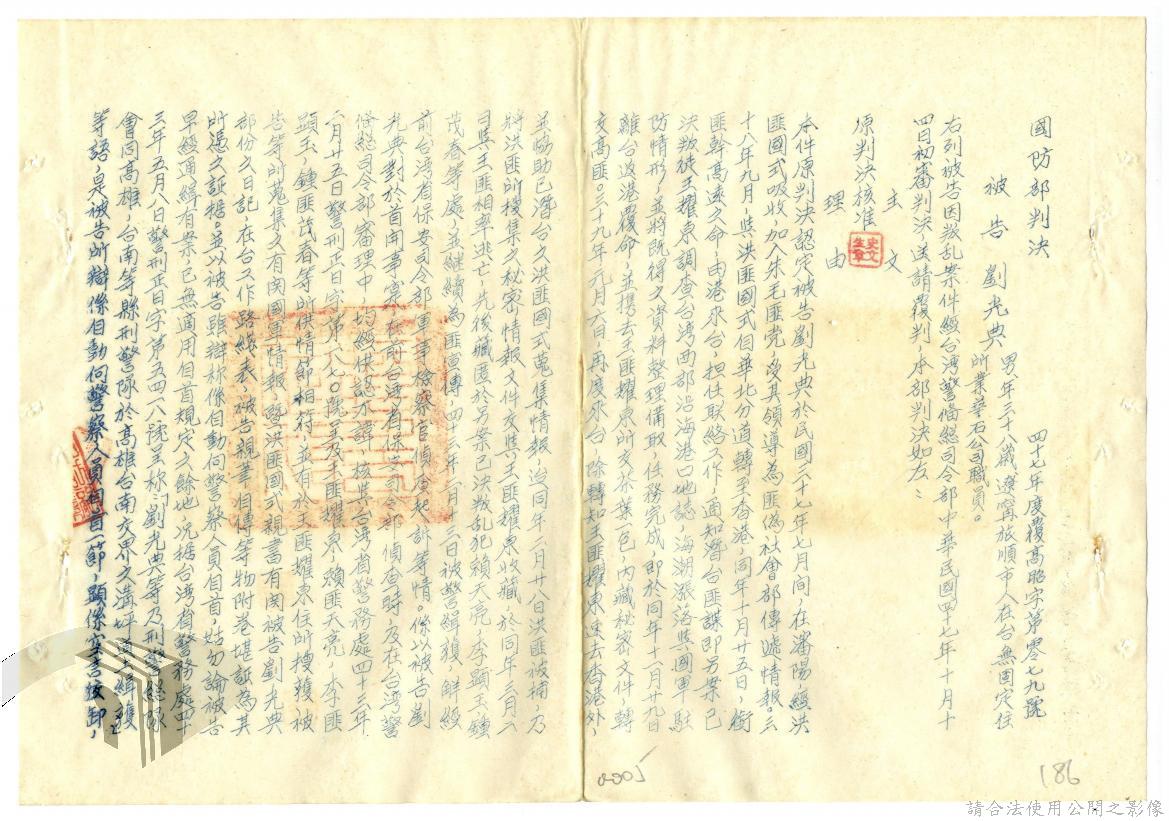 國防部判決
四十七年度覆高昭字第零七九號
被告 劉光典 男年三十八歲遼甯旅順市人在台無固定住
所業華石公司職員。
右列被告因叛乱案件經台湾警偹總司令部中華民國四十七年十月十
四日初審判決送請覆判，本部判決如左：
主文
原判決核准
理由
本件原判決認定被告劉光典於民國三十七年七月間，在瀋陽經洪
匪國式吸收加入朱毛匪党，受其領導為匪偽社會部傳遞情報。三
十八年九月，與洪匪國式自華北分道轉至香港，同年十月廿五日，銜
匪幹高遠之命，由港來台，担任联絡工作，通知潛台匪諜即另案已
決叛徒王耀東調查台湾西部沿海港口地誌，海潮漲落與國軍駐
防情形，並將既得之資料整理備取，任務完成，即於同年十一月廿九日
離台返港覆命，並携去王匪耀東所交茶葉一包，內藏秘密文件，轉
交高匪。三十九年元月六日，再度來台，除轉知王匪耀東速去香港外，
並協助已潛台之洪匪國式蒐集情報，迨同年二月廿八日洪匪被捕，乃
將洪匪所搜集之秘密情報文件交與王匪耀東收藏，於同年三月六
司與王匪相率逃亡，先後藏匿於另案已決叛乱犯賴天亮，李顯玉鍾
茂春等處，並继續為匪宣傳，四十三年二月三日被警緝獲，解經
前台湾省保安司令部軍事檢察官偵查起訴等情。係以被告劉
光典對於首開事實，在前台湾省保安司令部偵查時，及在台湾警
偹總司令部審理中，均經供認不諱，核與台湾省警務處四十三年
二月廿五日警刑正日字第一八七〇號呈及王匪耀東，賴匪天亮，李匪
顯玉，鍾匪茂春等所供情節相符，並有於王匪耀東住所搜獲被
告等所蒐集之有関國軍情報，暨洪匪國式親書有関被告劉光典
部份之日記，在台工作路綫表，被告親筆自傳等物附卷堪証為其
所憑之証據。並以被告雖辯称係自動向警察人員自首，姑勿論被告
早經通緝有案，已無適用自首規定之餘地，況據台湾省警務處四十
三年五月八日警刑正日字第五四一八號呈称：「劉光典等乃刑警總隊
會同高雄，台南等縣刑警隊於高雄台南交界之溝坪頂緝獲
等語，是被告所辯係自動向警察人員自首一節，顯係空言諉卸，
186
請合法使用公開之影像